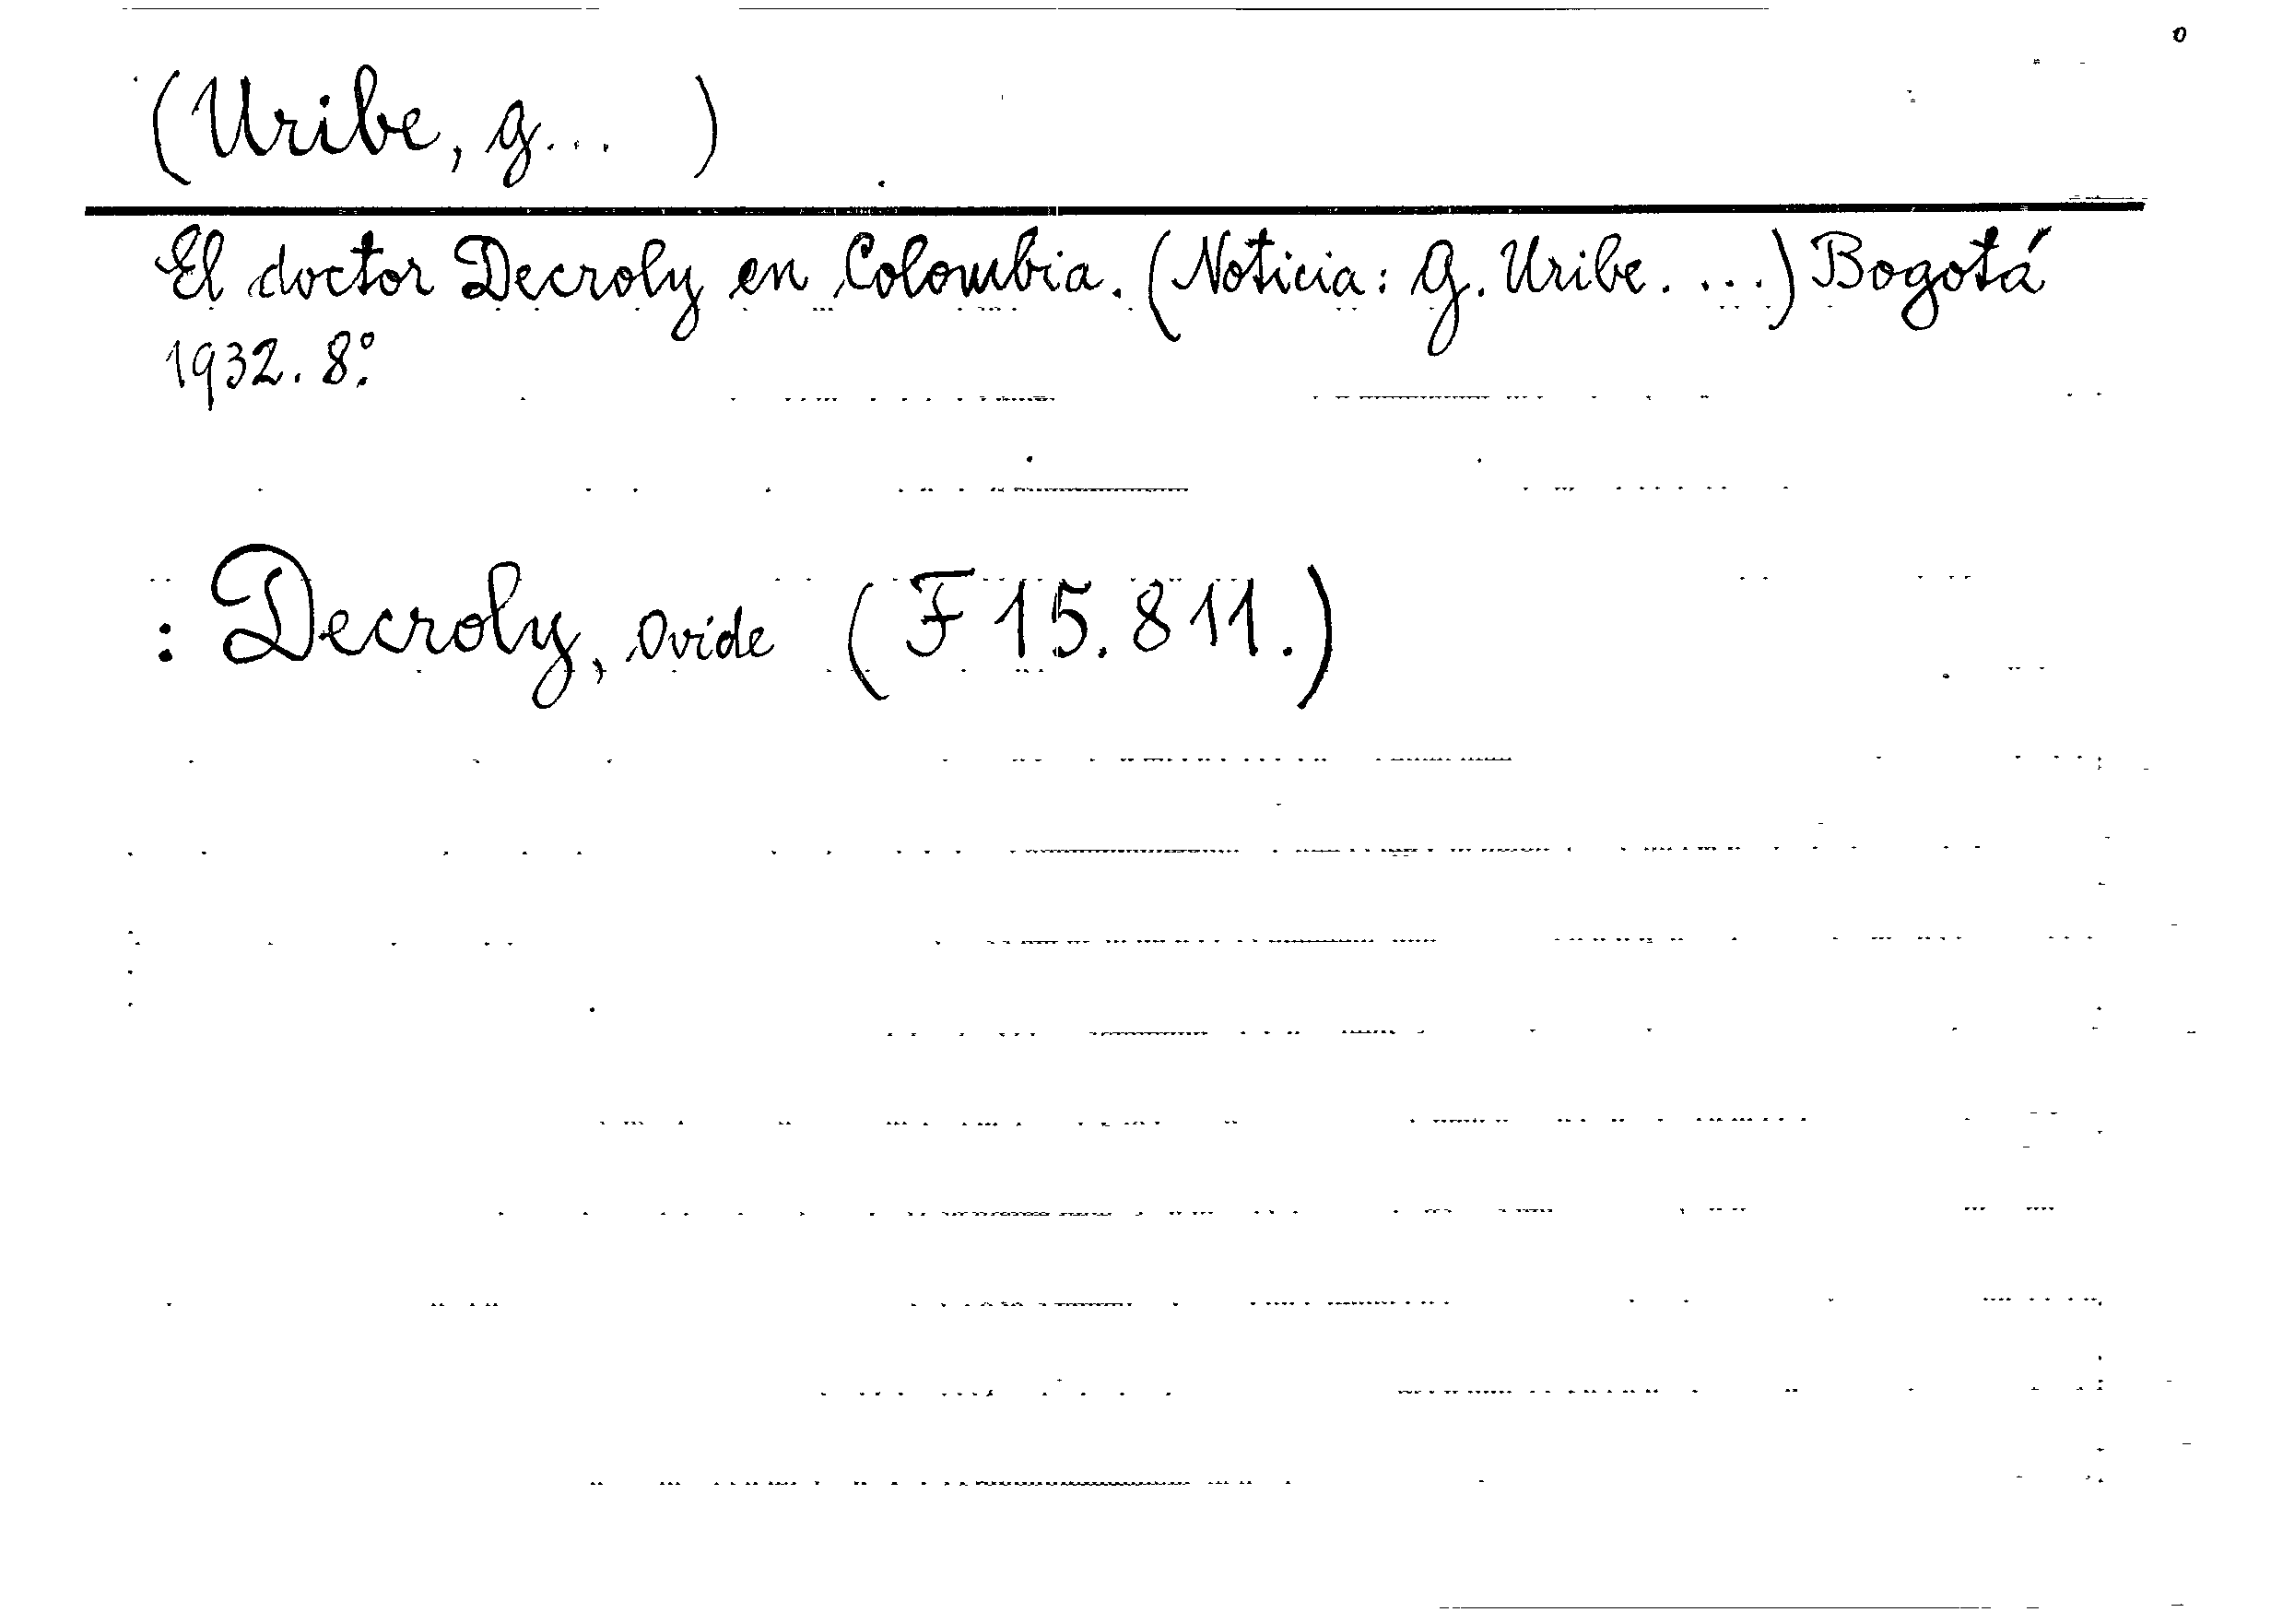 (Uribe, G... )
El doctor Decroly en Colombia. (Noticia: G. Uribe. ...) Bogotá
1932. 8º.
: Decroly, Ovide (F 15.811.)